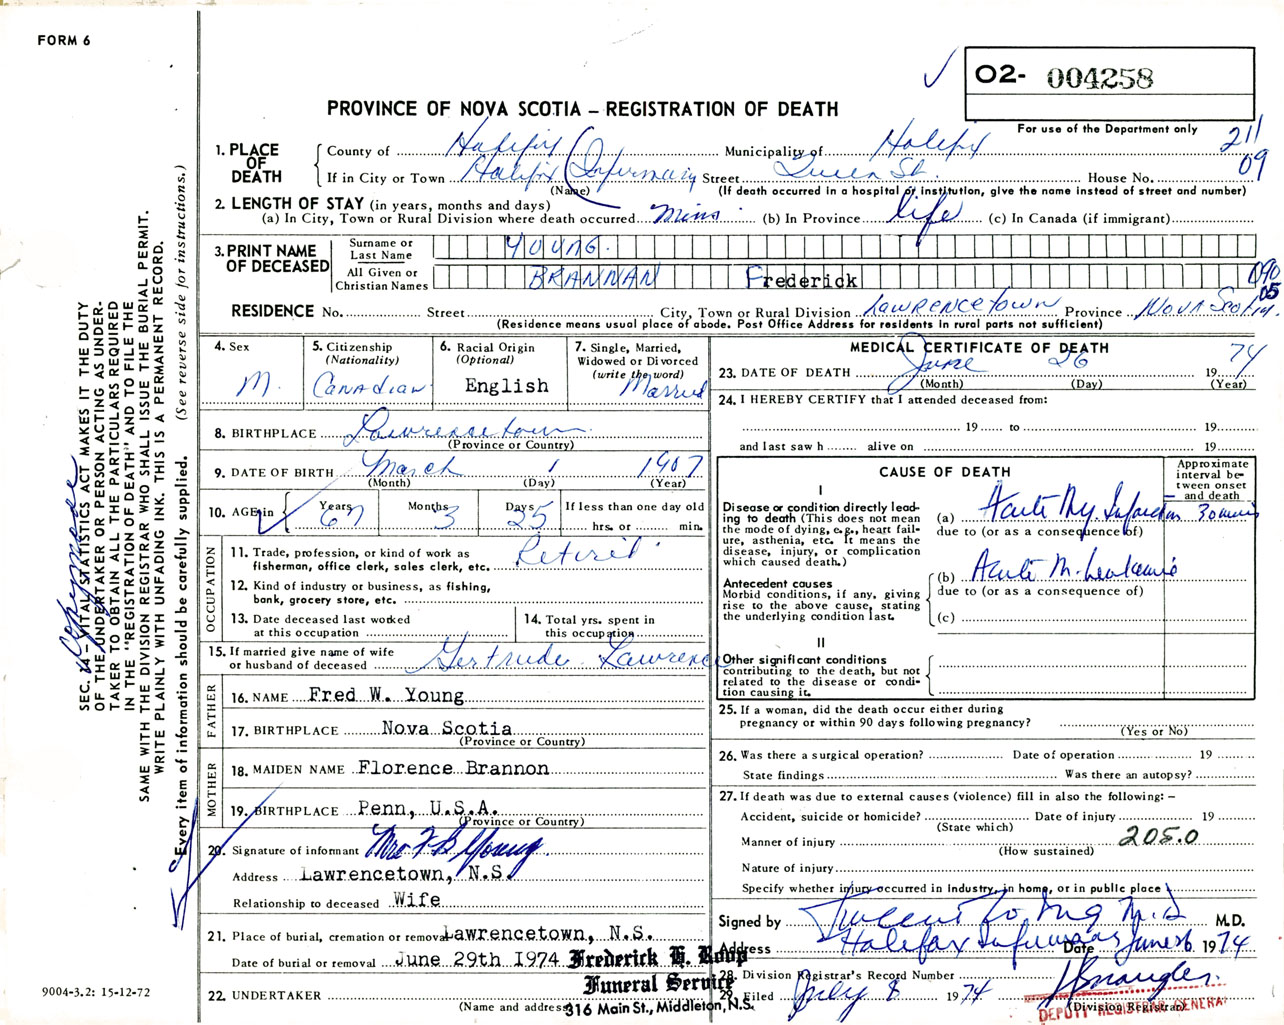 FORM 6
O2- 004258
PROVINCE OF NOVA SCOTIA – REGISTRATION OF DEATH
For use of the Department only
211
09
1. PLACE OF DEATH
County of Halifax Municipality of Halifax
If in City or Town Halifax (Infirmary Street Queen St. House No.
(Name) (If death occurred in a hospital or institution, give the name instead of street and number)
2. LENGTH OF STAY (in years, months and days)
(a) In City, Town or Rural Division where death occurred mins (b) In Province life (c) In Canada (if immigrant)
3. PRINT NAME OF DECEASED
Surname or Last Name YOUNG.
All Given or Christian Names BRANNAN Frederick
090
05
RESIDENCE No. Street City, Town or Rural Division LAWRENCETOWN Province NOVA SCOTIA.
(Residence means usual place of abode. Post Office Address for residents in rural parts not sufficient)
4. Sex M.
5. Citizenship (Nationality) CANADIAN
6. Racial Origin (Optional) English
7. Single, Married, Widowed or Divorced (write the word) Married
8. BIRTHPLACE Lawrencetown
(Province or Country)
9. DATE OF BIRTH March 1 1907
(Month) (Day) (Year)
10. AGE in Years 67 Months 3 Days 25 If less than one day old
hrs. or min.
OCCUPATION
11. Trade, profession, or kind of work as fisherman, office clerk, sales clerk, etc. Retired
12. Kind of industry or business, as fishing, bank, grocery store, etc.
13. Date deceased last worked at this occupation
14. Total yrs. spent in this occupation
15. If married give name of wife or husband of deceased Gertrude Lawrence
FATHER
16. NAME Fred W. Young
17. BIRTHPLACE Nova Scotia
(Province or Country)
MOTHER
18. MAIDEN NAME Florence Brannon
19. BIRTHPLACE Penn, U.S.A.
(Province or Country)
20. Signature of informant Mrs F B Young.
Address Lawrencetown, N.S.
Relationship to deceased Wife
21. Place of burial, cremation or removal Lawrencetown, N.S.
Date of burial or removal June 29th 1974
22. UNDERTAKER
Frederick H. Roop
Funeral Service
(Name and address) 316 Main St., Middleton, N.S.
MEDICAL CERTIFICATE OF DEATH
23. DATE OF DEATH June 26 1974
(Month) (Day) (Year)
24. I HEREBY CERTIFY that I attended deceased from:
19 to 19
and last saw h alive on 19
CAUSE OF DEATH
Approximate interval between onset and death
I
Disease or condition directly leading to death (This does not mean the mode of dying, e.g., heart failure, asthenia, etc. It means the disease, injury, or complication which caused death.)
(a) Acute My. Infarction 30 mins
due to (or as a consequence of)
Antecedent causes
Morbid conditions, if any, giving rise to the above cause, stating the underlying condition last.
(b) Acute M. Leukemia
due to (or as a consequence of)
(c)
II
Other significant conditions contributing to the death, but not related to the disease or condition causing it.
25. If a woman, did the death occur either during pregnancy or within 90 days following pregnancy?
(Yes or No)
26. Was there a surgical operation? Date of operation 19
State findings Was there an autopsy?
27. If death was due to external causes (violence) fill in also the following: –
Accident, suicide or homicide? Date of injury 19
(State which)
Manner of injury 205.0
(How sustained)
Nature of injury
Specify whether injury occurred in Industry, in home, or in public place
Signed by M.D.
Address Halifax Infirmary Date June 26 1974
28. Division Registrar's Record Number
29. Filed July 8 1974
(Division Registrar)
DEPUTY REGISTRAR GENERAL
SEC. 14 – VITAL STATISTICS ACT MAKES IT THE DUTY
OF THE UNDERTAKER OR PERSON ACTING AS UNDER-
TAKER TO OBTAIN ALL THE PARTICULARS REQUIRED
IN THE "REGISTRATION OF DEATH" AND TO FILE THE
SAME WITH THE DIVISION REGISTRAR WHO SHALL ISSUE THE BURIAL PERMIT.
WRITE PLAINLY WITH UNFADING INK. THIS IS A PERMANENT RECORD.
Every item of information should be carefully supplied. (See reverse side for instructions.)
9004-3.2: 15-12-72